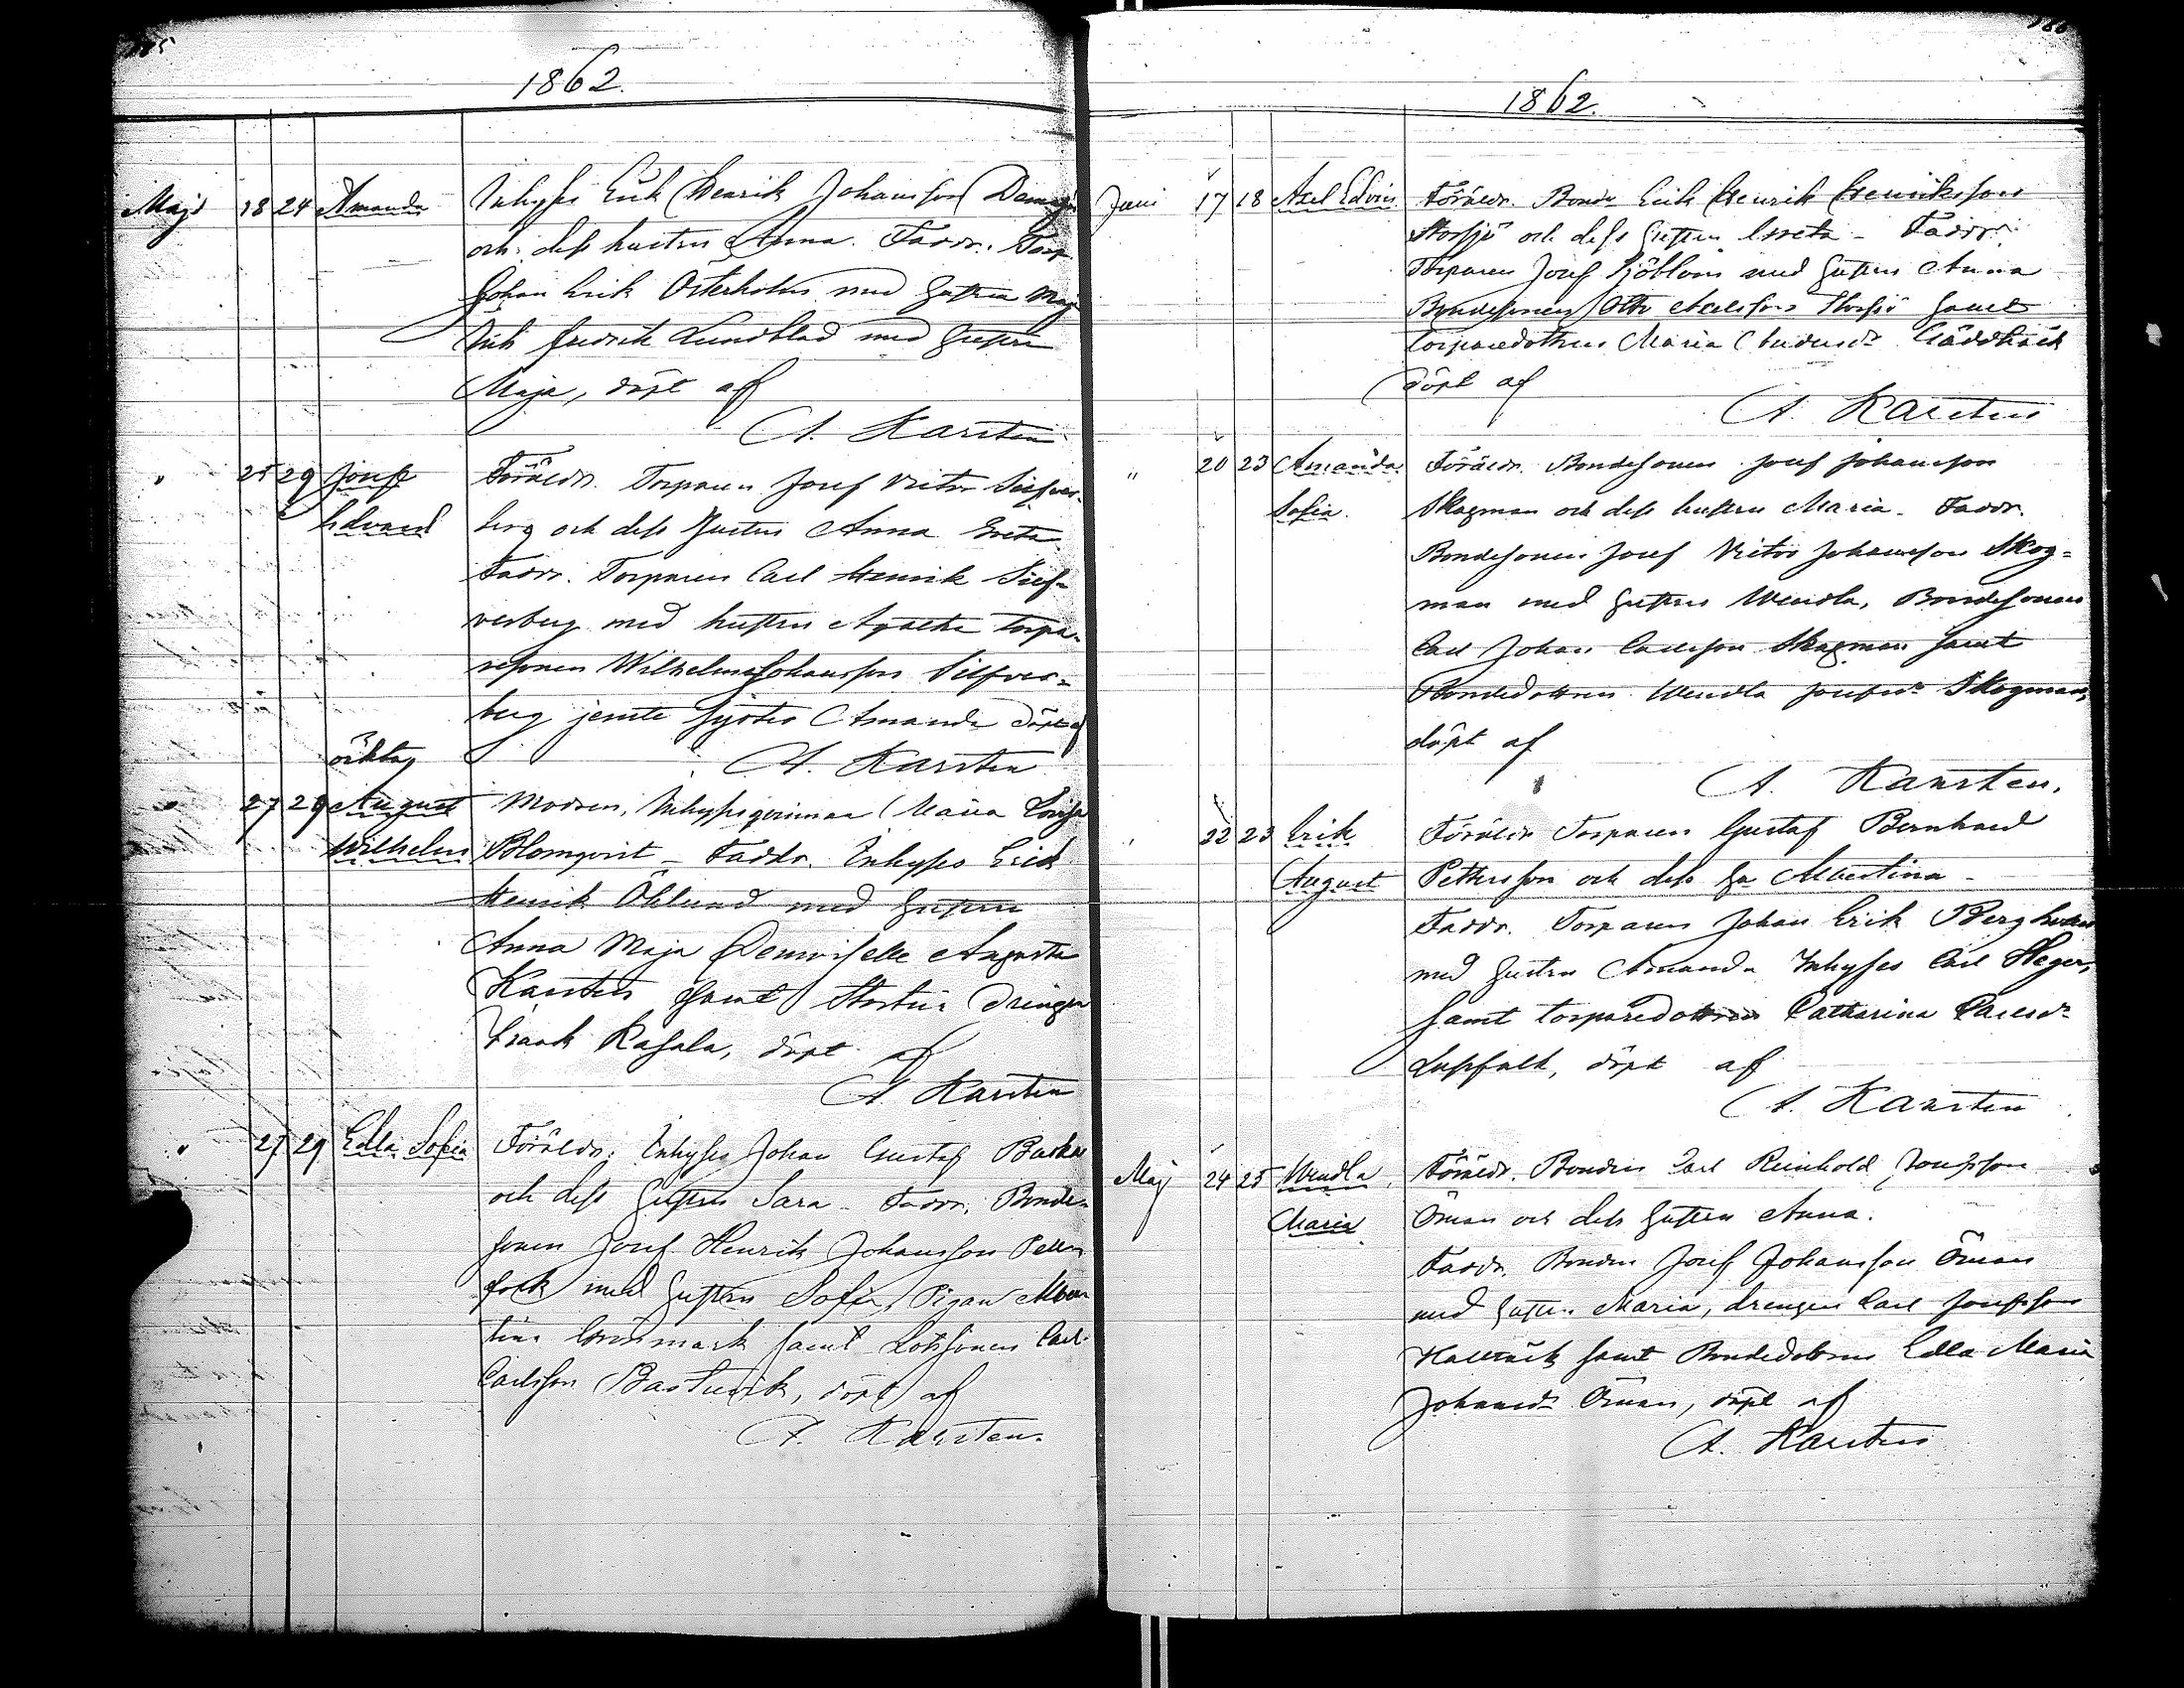 185
1862.
Maji 18 24 Amanda Inhyses Erik Henrik Johansson
och dess hustru Anna. Faddr. Torp
Johan Erik Österholm med hustru Maja
Inh Fredrik Lundblad med hustru
Maja, döpt af
A. Karsten
" 25 29 Josef Föräldr. Torparen Josef Victor Silfver-
Edvard berg och dess hustru Anna Greta
Faddr. Torparen Carl Henrik Silf-
verberg med hustru Agatha torpa-
resonen Wilhelm Johansson Silfver-
berg jemte syster Amanda döpt af
oäkta A. Karsten
" 27 29 August Modren, Inhysesqvinnan Maria Lovisa
Wilhelm Blomqvist – Faddr. Inhyses Erik
Henrik Öhlund med hustru
Anna Maja Demoiselle Augusta
Karsten samt drängen
Isaak Kasala, döpt af
A. Karsten
" 27 29 Edla Sofia Föräldr. Inhyses Johan Gustaf
och dess hustru Sara – Faddr. Bonde-
sonen Josef Henrik Johansson
med hustru Sofia, Pigan Alber-
tina Grönmark samt Lotssonen Carl
Carlsson Bastuvik, döpt af
A. Karsten.
186
1862.
Juni 17 18 Axel Edvin Föräldr. Bonde Erik Henrik Henriksson
Storsjö och dess hustru Greta – Faddr.
Torparen Josef Sjöblom med hustru Anna
Bondesonen Otto Axelsson Storsjö samt
torparedottren Maria
döpt af
A. Karsten
" 20 23 Amanda Föräldr. Bondesonen Josef Johansson
Sofia. Skogman och dess hustru Maria – Faddr.
Bondesonen Josef Victor Johansson Skog-
man med hustru Wendla, Bondesonen
Carl Johan Carlsson Skogman samt
Bondedottren Wendla Josefsdr Skogman,
döpt af
A. Karsten.
" 22 23 Erik Föräldr Torparen Gustaf Bernhard
August Pettersson och dess hu Albertina –
Faddr. Torparen Johan Erik
med hustru Amanda Inhyses Carl Heger,
samt torparedottren Catharina Carlsdr
döpt af
A. Karsten
Maj 24 25 Wendla Föräldr. Bonden Carl Reinhold Josefsson
Maria Öman och dess hustru Anna.
Faddr. Bonden Josef Johansson Öman
med hustru Maria, drengen Carl Josefsson
samt Bondedottren Edla Maria
Johansdr Öman, döpt af
A. Karsten